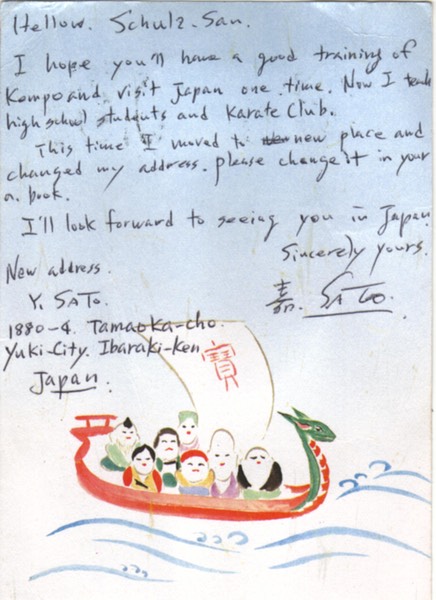 Hellow. Schulz-San.
I hope you'll have a good training of
Kempo and visit Japan one time. Now I teach
high school students and Karate Club.
This time I moved to new place and
changed my address. please change it in your
a. book.
I'll look forward to seeing you in Japan
Sincerely yours.
New address.
SATO.
Y. SATO.
1880-4. Tamaoka-cho.
Yuki-City. Ibaraki-Ken
Japan.
寶